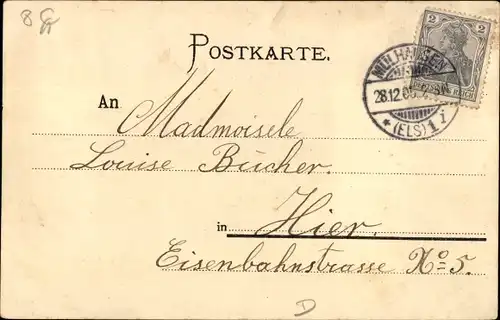 8
POSTKARTE.
2 2
MÜLHAUSEN
28.12.05
* (ELS) 1 i
An Madmoisele
Louise Bücher.
in Hier.
Eisenbahnstrasse No 5.
D